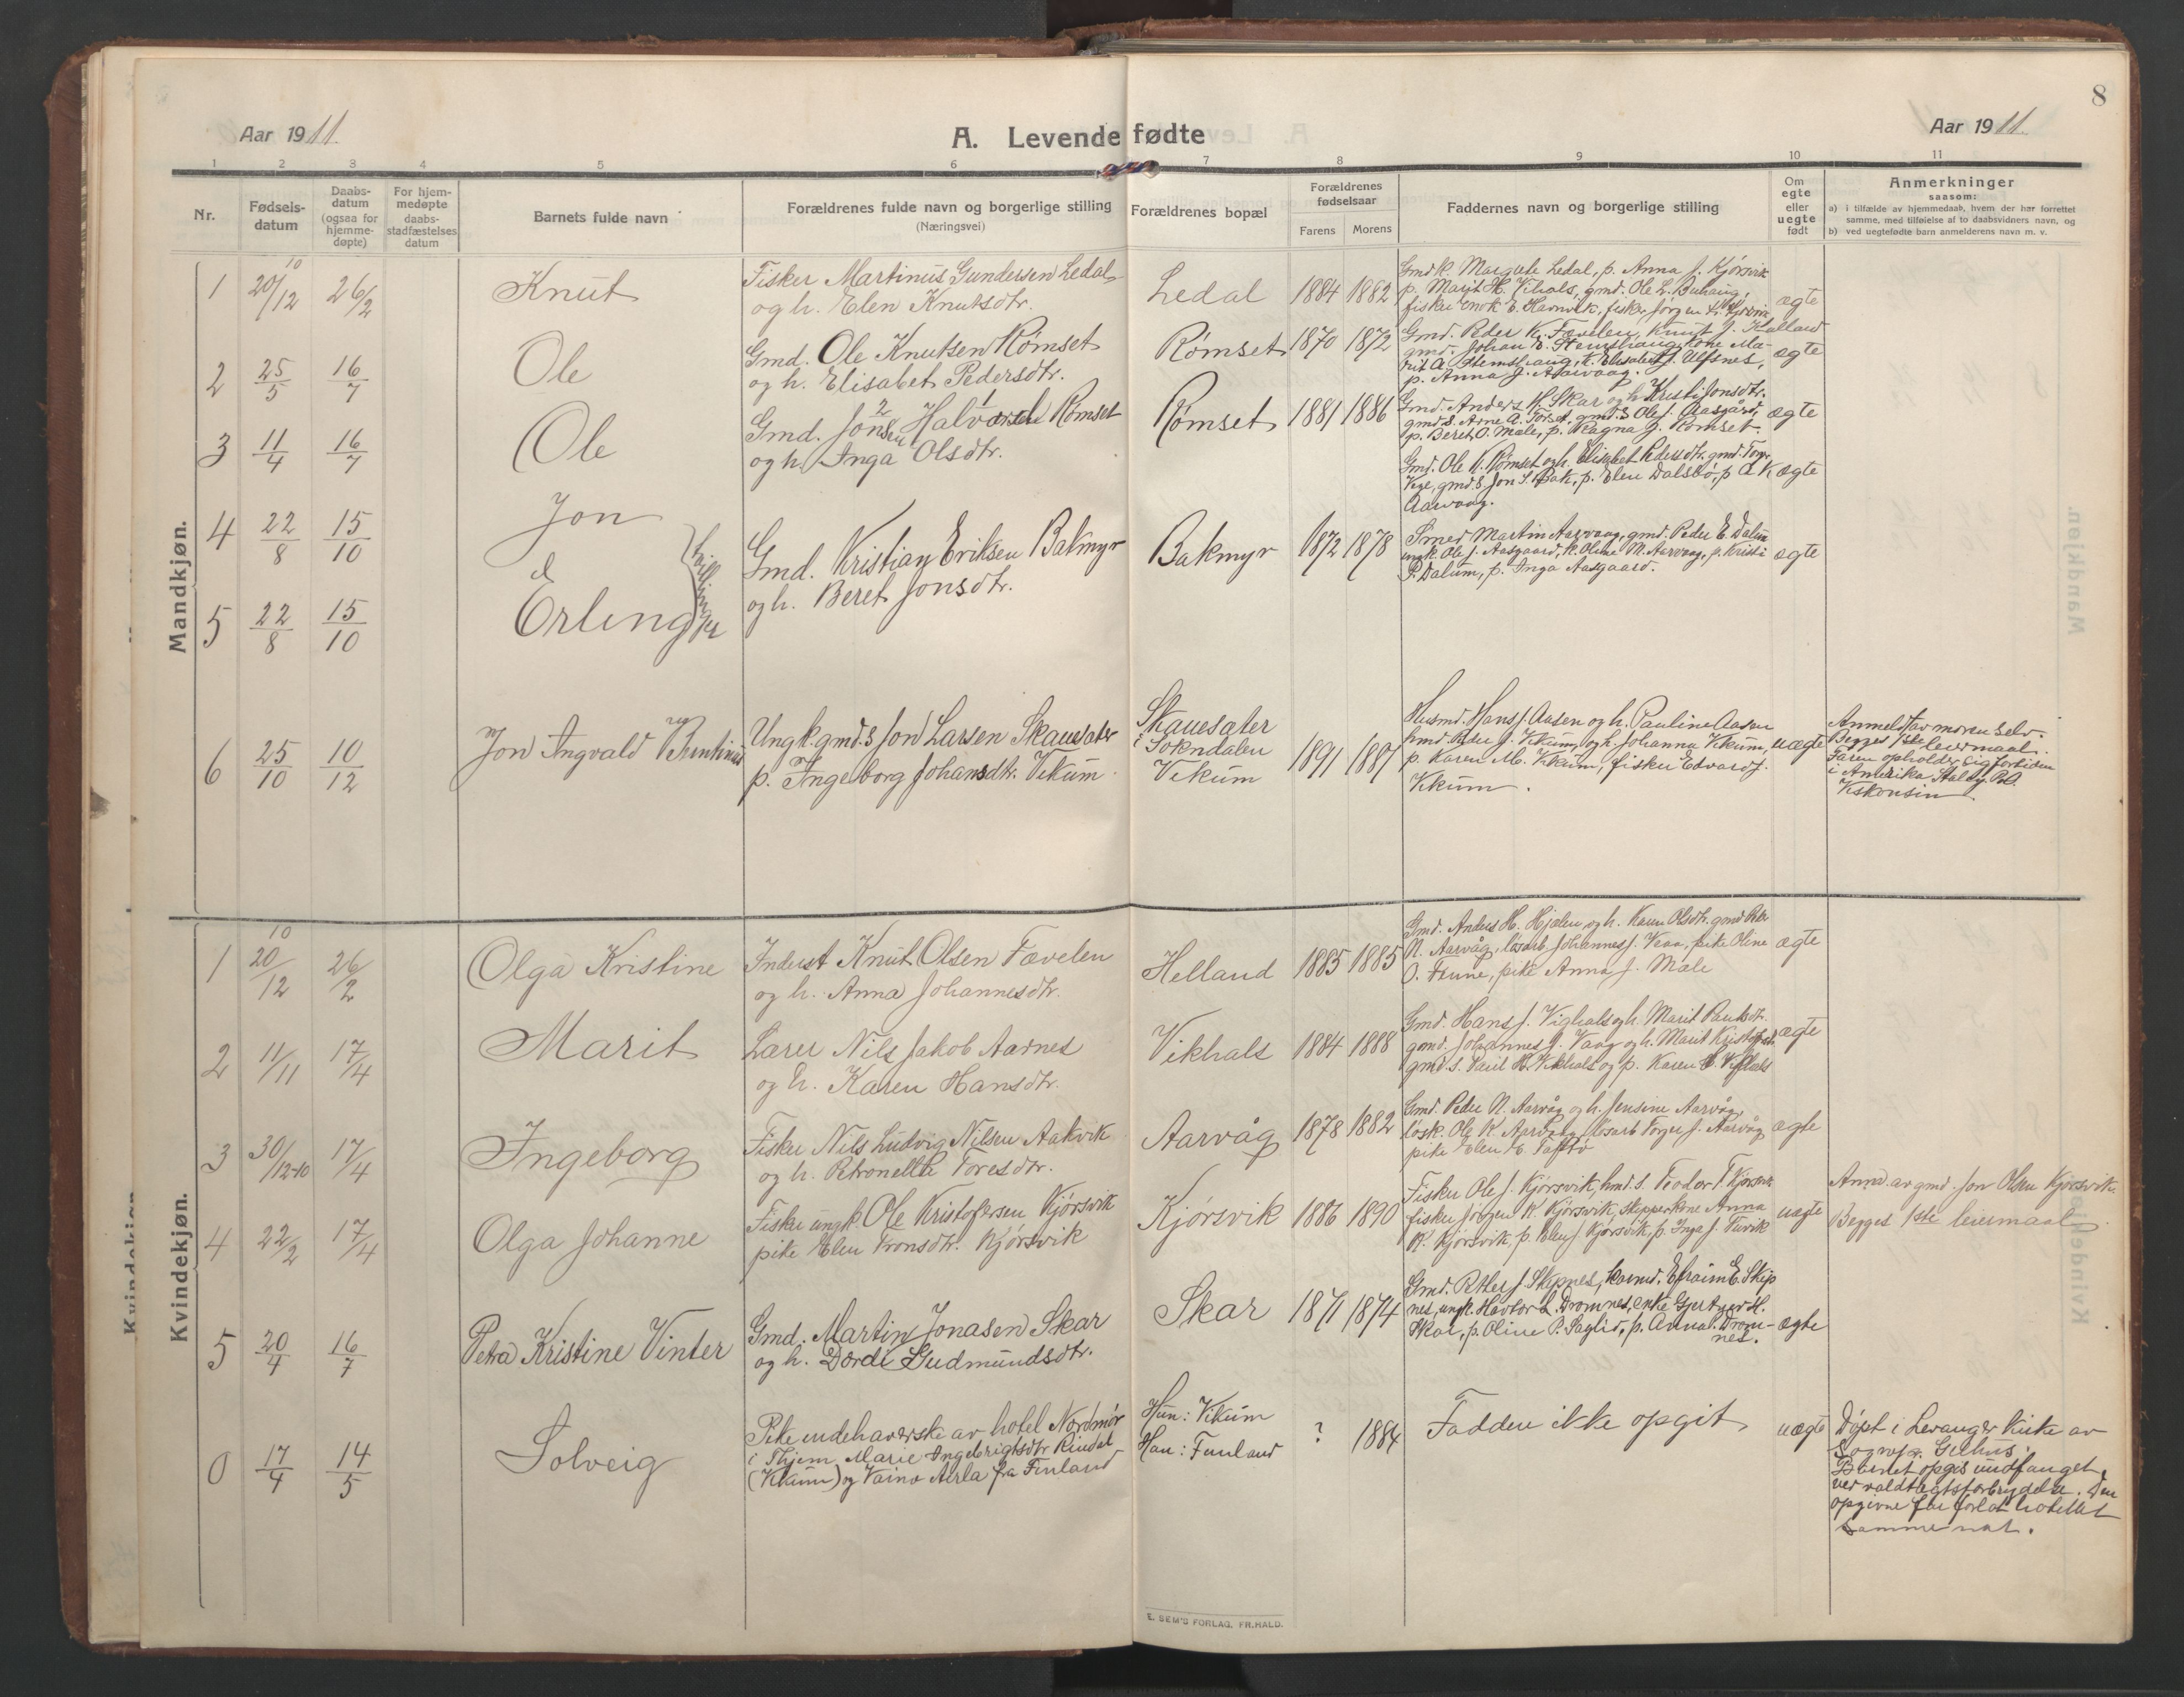 8
Aar 1911.
A. Levende fødte
Aar 1911.
1 2 3 4 5 6 7 8 9 10 11
Nr.
Fødsels-
datum
Daabs-
datum
(ogsaa for
hjemme-
døpte)
For hjem-
medøpte
daabs-
stadfæstelses
datum
Barnets fulde navn
Forældrenes fulde navn og borgerlige stilling
(Næringsvei)
Forældrenes bopæl
Forældrenes
fødselsaar
Farens Morens
Faddernes navn og borgerlige stilling
Om
egte
eller
uegte
født
Anmerkninger
saasom:
a) i tilfælde av hjemmedaab, hvem der har forrettet
samme, med tilføielse af to daabsvidners navn, og
b) ved uegtefødte barn anmelderens navn m. v.
Mandkjøn.
1 20/12 10 26/2 Knut
Fisker Martinus Gundersen Ledal
og h. Elen Knutsdtr.
Ledal 1884 1882
Gmdk. Margrete Ledal, p. Anna J. Kjørsvik
p. Marit H. Vihals, gmd. Ole L. Buhaug,
fisker Enok E. Havnvik, fisker Jørgen K. Kjørsvik
ægte
2 25/5 16/7 Ole
Gmd. Ole Knutsen Rømset
og h. Elisabet Pedersdtr.
Rømset 1870 1872
Gmd. Peder K. Fævelen, Knut J. Kalland
gmd. Johan E. Stemshaug, kone Ma-
rit A. Stemshaug, k. Elisabet J. Ulfsnes,
p. Anna J. Aarvaag.
ægte
3 11/4 16/7 Ole
Gmd. Jonsen 2 Halvard 1 Rømset
og h. Inga Olsdtr.
Rømset 1881 1886
Gmd. Anders H. Skar og h. Kristi Jonsdtr.
gmd.s. Arne A. Torset, gmd.s Ole J. Aasgård,
p. Beret O. Mæle, p. Ragna J. Rømset.
ægte
4 22/8 15/10 Jon
Gmd. Ole K. Rømset og h. Elisabet Pedersdtr. gmd. Torger
Vege, gmd.s Jon S. Bak, p. Elen Dalsbø, p. A K
Aarvaag.
ægte
&
tvillinger
Gmd. Kristian Eriksen Bakmyr
og h. Beret Jonsdtr.
Bakmyr 1872 1878
5 22/8 15/10 Erling
Smed Martin Aarvaag, gmd. Peder E. Dalum
ungk. Ole J. Aasgaard, k. Oline N. Aarvaag, p. Kristi
P. Dalum, p. Inga Aasgaard.
ægte
6 25/10 10/12 Jon Ingvald
Ungk. gmd.s Jon Larsen Skauesæter
p. Ingeborg Johansdtr. Vikum.
Skauesæter
i Soknedalen
Vikum
1891 1887
Husmd. Hans J. Aasen og h. Pauline Aasen
hmd. Peder J. Vikum, og h. Johanna Vikum,
p. Karen M. Vikum, fisker Edvard J.
Vikum.
uægte
Anmeldt av moren selv.
Begges 1ste leiermaal.
Faren opholder sig fortiden
i Amerika, P.O.
Viskonsin
Kvindekjøn.
1 20/12 10 26/2 Olga Kristine
Inderst Knut Olsen Fævelen
og h. Anna Johannesdtr.
Helland 1885 1885
Gmd. Anders H. Hjælen og h. Karen Olsdtr. gmd Peder
N. Aarvåg, løsarb. Johannes J. Vean, pike Oline
O. Trune, pike Anna J. Mæle
ægte
2 11/11 17/4 Marit
Lærer Nils Jakob Aarnes
og h. Karen Hansdtr.
Vikhals 1884 1888
Gmd. Hans J. Vighals og h. Marit Paulsdtr.
gmd. Johannes J. Vaag og h. Marit Kristofersdtr.
gmd.s. Paul H. Vikhals og p. Karen H. Vikhals
ægte
3 30/12-10 17/4 Ingeborg
Fisker Nils Ludvig Nilsen Aakvik
og h. Petronelle Toresdtr.
Aarvåg 1878 1882
Gmd. Peder N. Aarvåg og h. Jensine Aarvåg
løsk. Ole K. Aarvåg, løsarb Torger J. Aarvåg
pike Elen E. Taftø
ægte
4 22/2 17/4 Olga Johanne
Fisker ungk. Ole Kristofersen Kjørsvik
pike Elen Tronsdtr. Kjørsvik
Kjørsvik 1886 1890
Fisker Ole J. Kjørsvik, hmd.s. Teodor T. Kjørsvik
fisker Jørgen K. Kjørsvik, skipperkone Anna
K. Kjørsvik, p. Elen J. Kjørsvik, p. Inga J. Turvik
uægte
Anm. av gmd. Jon Olsen Kjørsvik.
Begges 1ste leiermaal
5 20/4 16/7 Petra Kristine Vinter
Gmd. Martin Jonasen Skar
og h. Dordi Gudmundsdtr.
Skar 1871 1874
Gmd. Peter J. Skipnes, kaarmd. Efraim E. Skip
nes, ungk. Havtor L. Dromnes, enke Gjertrud H.
Skar, p. Oline P. Saglid, p. Anna L. Drom-
nes.
ægte
0 17/4 14/5 Solveig
Pike indehaverske av hotel Nordmør
i Thjem Marie Ingebrigtsdtr. Rindal
(Vikum) og Vaino Aerla fra Finland
Hun: Vikum
Han: Finland
? 1884
Faddere ikke opgit
uægte
Døpt i Levanger Kirke av
Sognepr. Gilhus.
Barnet opgis undfanget
ved voldtægtsforbrydelse. Den
opgivne far forlot hotellet
samme nat.
E. SEM'S FORLAG, FR.HALD.
Kvindekjøn